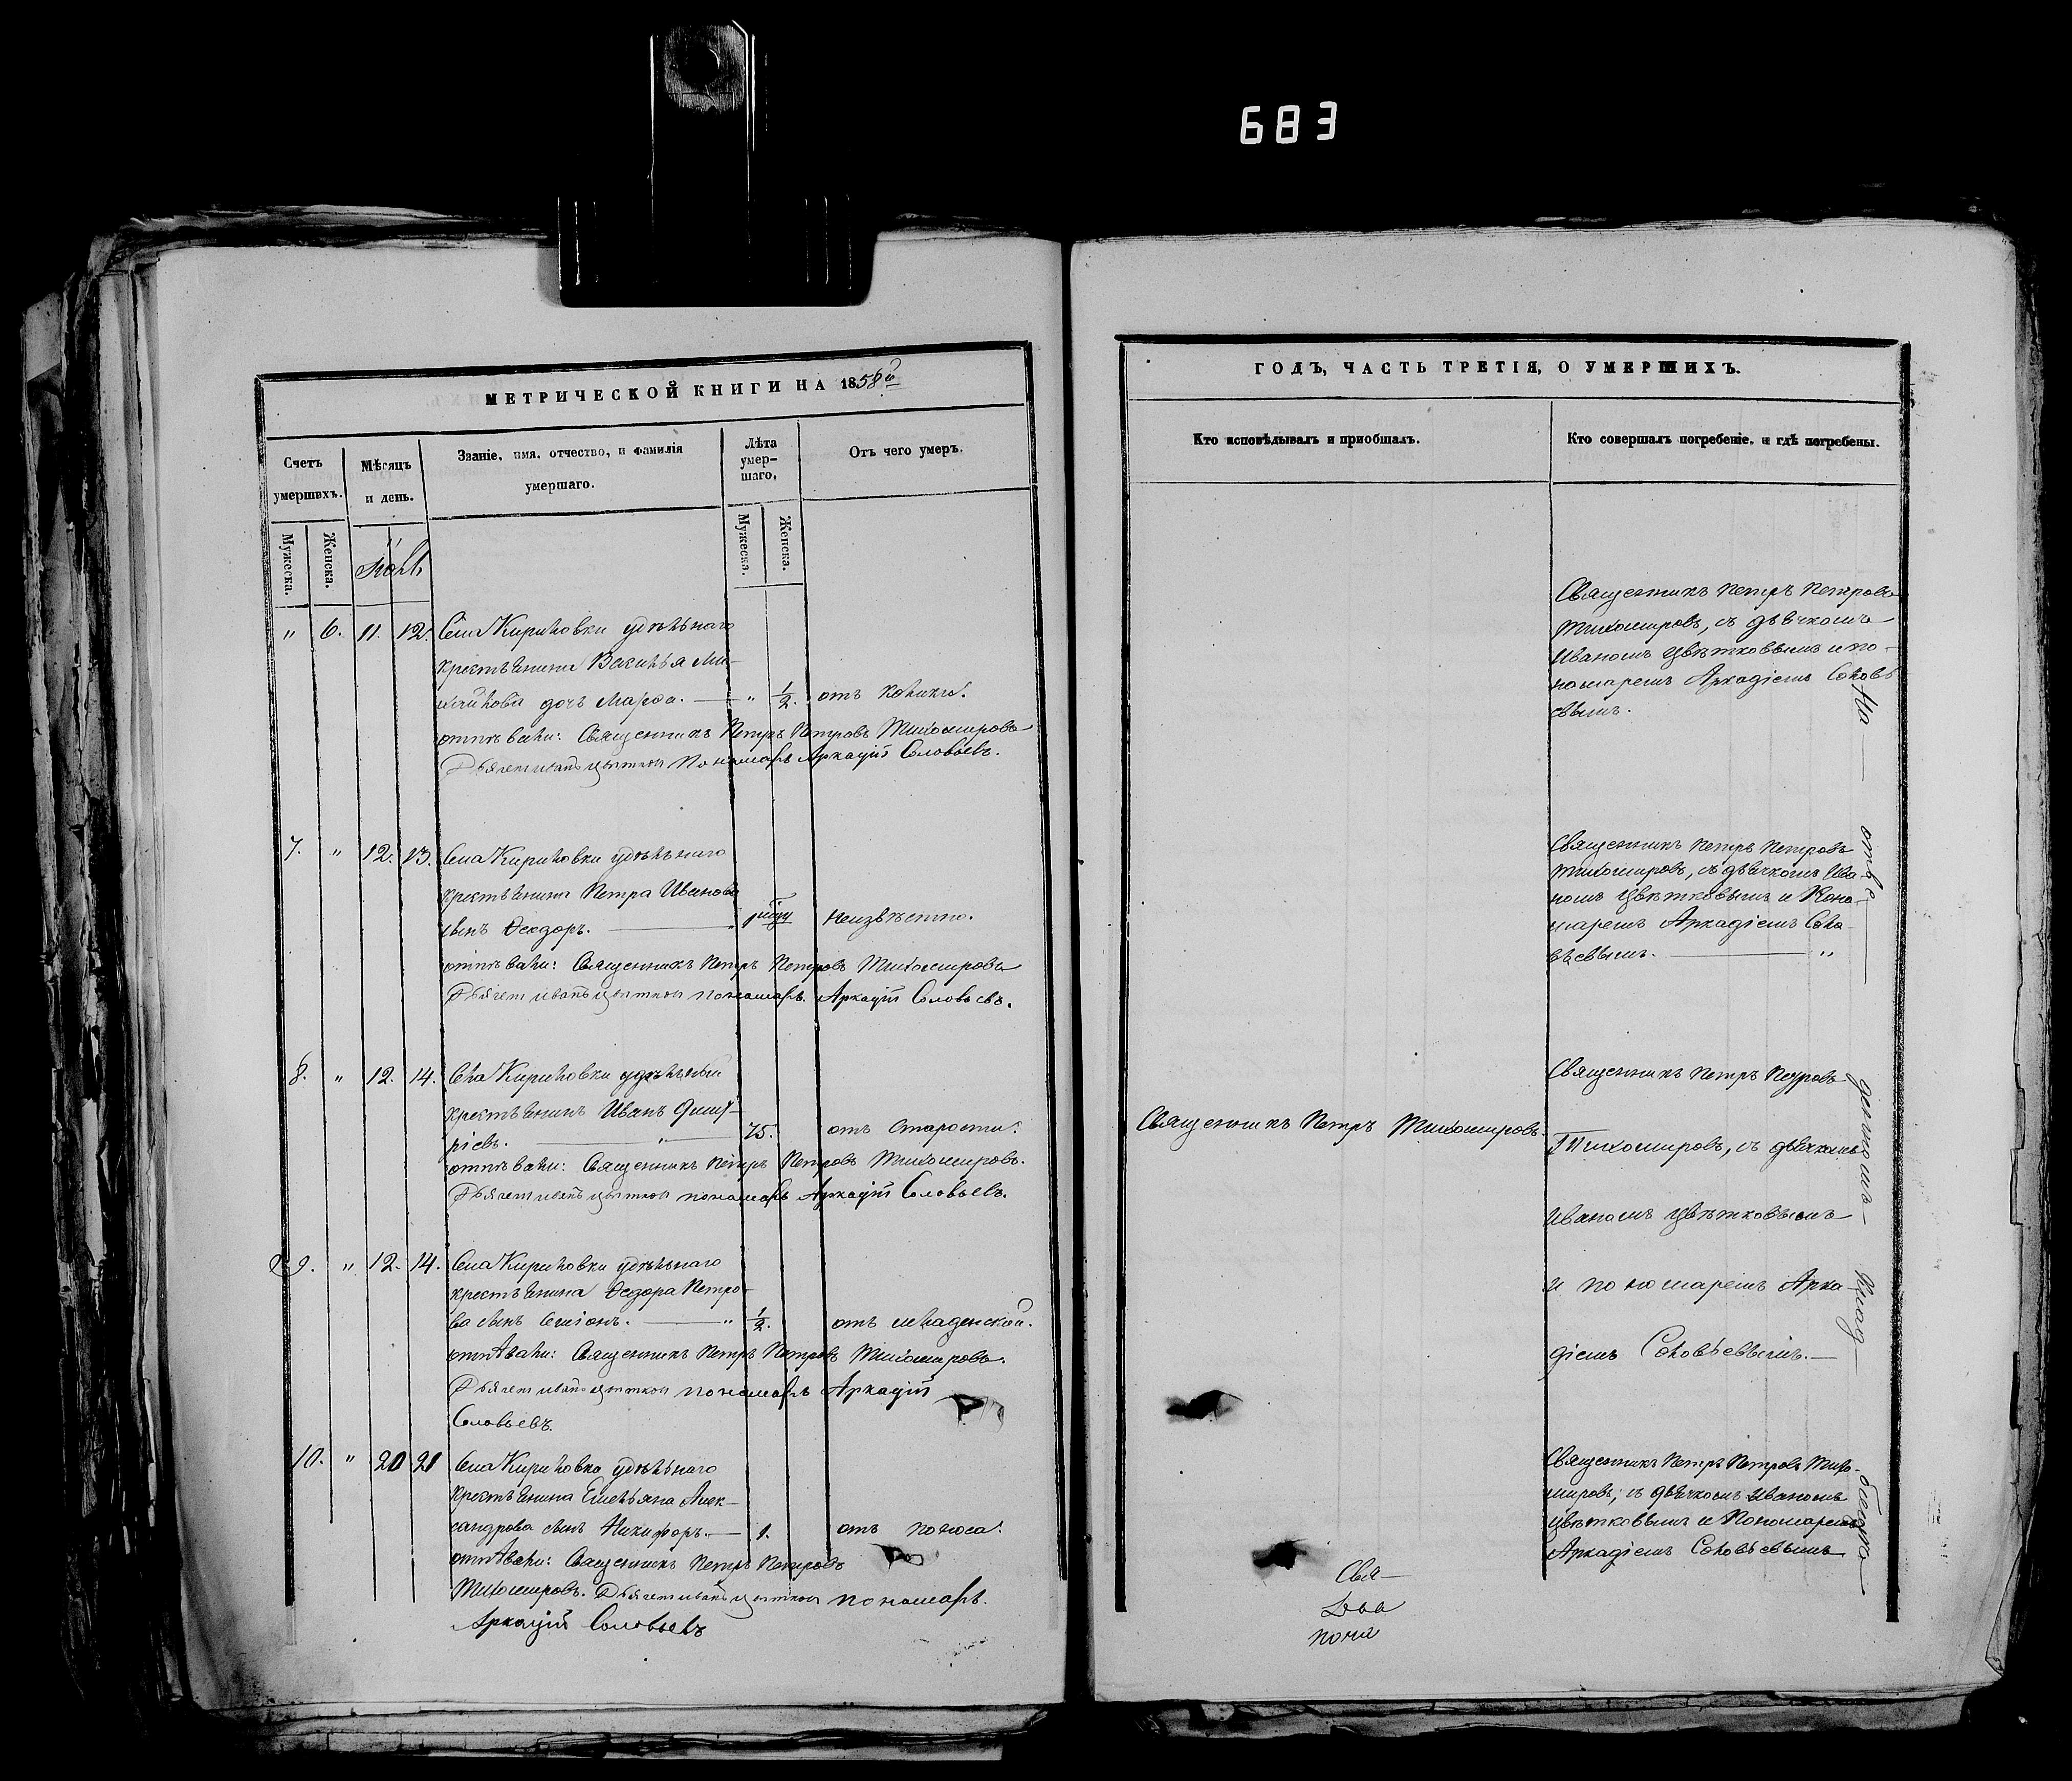 683
МЕТРИЧЕСКОЙ КНИГИ НА 1858й
Счетъ умершихъ.
Мѣсяцъ и день.
Званіе, имя, отчество, и фамилія умершаго.
Лѣта умер-
шаго,
Отъ чего умеръ.
Мужеска.
Женска.
Мужеска.
Женска.
" 6. 11. 12. Села Кириловки удѣльнаго
крестьянина Василья Ми-
дочь Марфа. — " 1/2. отъ колики.
отпѣвали: Священникъ Петръ Петровъ Тихомировъ
Пономарь Аркадій Соловьевъ.
7. " 12. 13. Села Кириловки удѣльнаго
крестьянина Петра Иванова
сынъ Ѳеодоръ. — неизвѣстно.
отпѣвали: Священникъ Петръ Петровъ Тихомировъ
пономарь Аркадій Соловьевъ.
8. " 12. 14. Села Кириловки удѣльный
крестьянинъ Иванъ Дмит-
ріевъ. — " — 75. отъ старости.
отпѣвали: Священникъ Петръ Петровъ Тихомировъ.
пономарь Аркадій Соловьевъ.
9. " 12. 14. Села Кириловки удѣльнаго
крестьянина Ѳедора Петро-
ва сынъ Симіонъ. — " 1/2. отъ младенской.
отпѣвали: Священникъ Петръ Петровъ Тихомировъ.
пономарь Аркадій
Соловьевъ.
10. " 20 21 Села Кириловки удѣльнаго
крестьянина Емельяна Алек-
сандрова сынъ Никифоръ. — 1. отъ поноса.
отпѣвали: Священникъ Петръ Петровъ
Тихомировъ. пономарь.
Аркадій Соловьевъ
ГОДЪ, ЧАСТЬ ТРЕТІЯ, О УМЕРШИХЪ.
Кто исповѣдывалъ и пріобщалъ.
Кто совершалъ погребеніе, и гдѣ погребены.
Священникъ Петръ Петровъ
Тихомировъ, съ дьячкомъ
Иваномъ Цвѣтковымъ и по-
номаремъ Аркадіемъ Соловь
евымъ.
Священникъ Петръ Петровъ
Тихомировъ, съ дьячкомъ Ива-
номъ Цвѣтковымъ и Поно-
маремъ Аркадіемъ Соло-
вьевымъ. — "
Священникъ Петръ Тихомировъ.
Священникъ Петръ Петровъ
Тихомировъ, съ дьячкомъ
Иваномъ Цвѣтковымъ
и пономаремъ Арка-
діемъ Соловьевымъ. —
Священникъ Петръ Петровъ Тихо-
мировъ, съ дьячкомъ Иваномъ
Цвѣтковымъ и Пономаремъ
Аркадіемъ Соловьевымъ
На — отве — денномъ — клад — бищѣ —
Свя —
Дья
поно